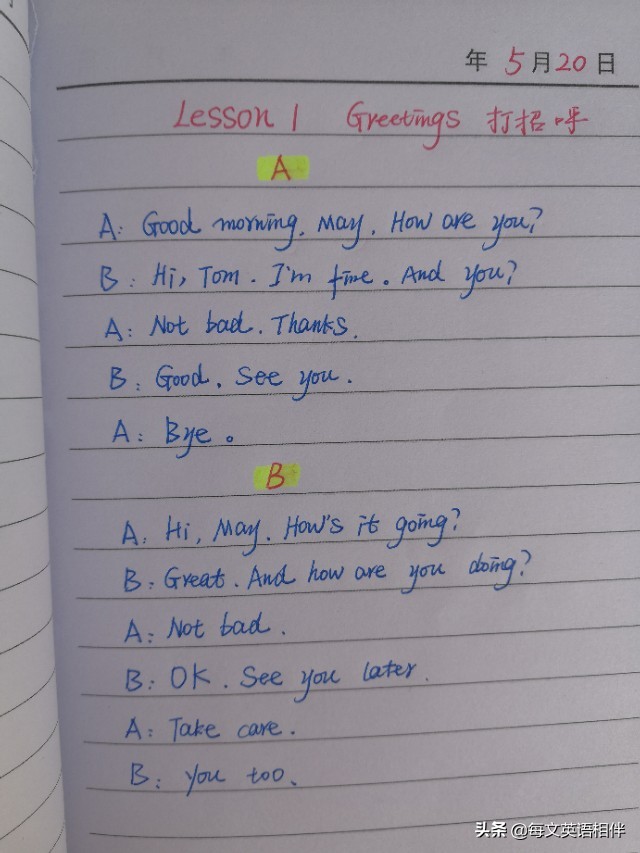 年 5月20日
Lesson 1 Greetings 打招呼
A
A: Good morning, May. How are you?
B: Hi, Tom. I'm fine. And you?
A: Not bad. Thanks.
B: Good. See you.
A: Bye。
B
A: Hi, May. How's it going?
B: Great. And how are you doing?
A: Not bad.
B: OK. See you later.
A: Take care.
B: you too.
头条 @每文英语相伴